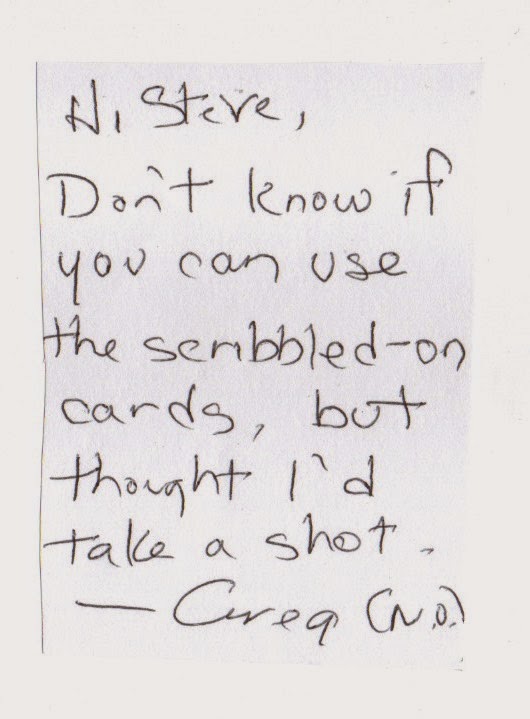 Hi Steve,
Don't know if
you can use
the scribbled-on
cards, but
thought I'd
take a shot.
— Greg (N.O.)